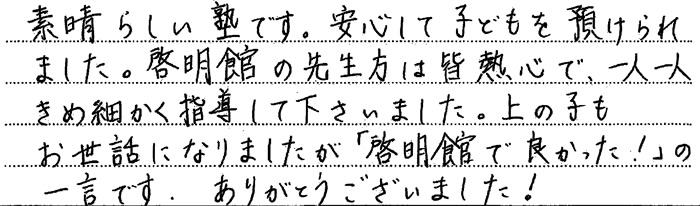 素晴らしい塾です。安心して子どもを預けられ
ました。啓明館の先生方は皆熱心で、一人一人
きめ細かく指導して下さいました。上の子も
お世話になりましたが「啓明館で良かった!」の
一言です. ありがとうございました!